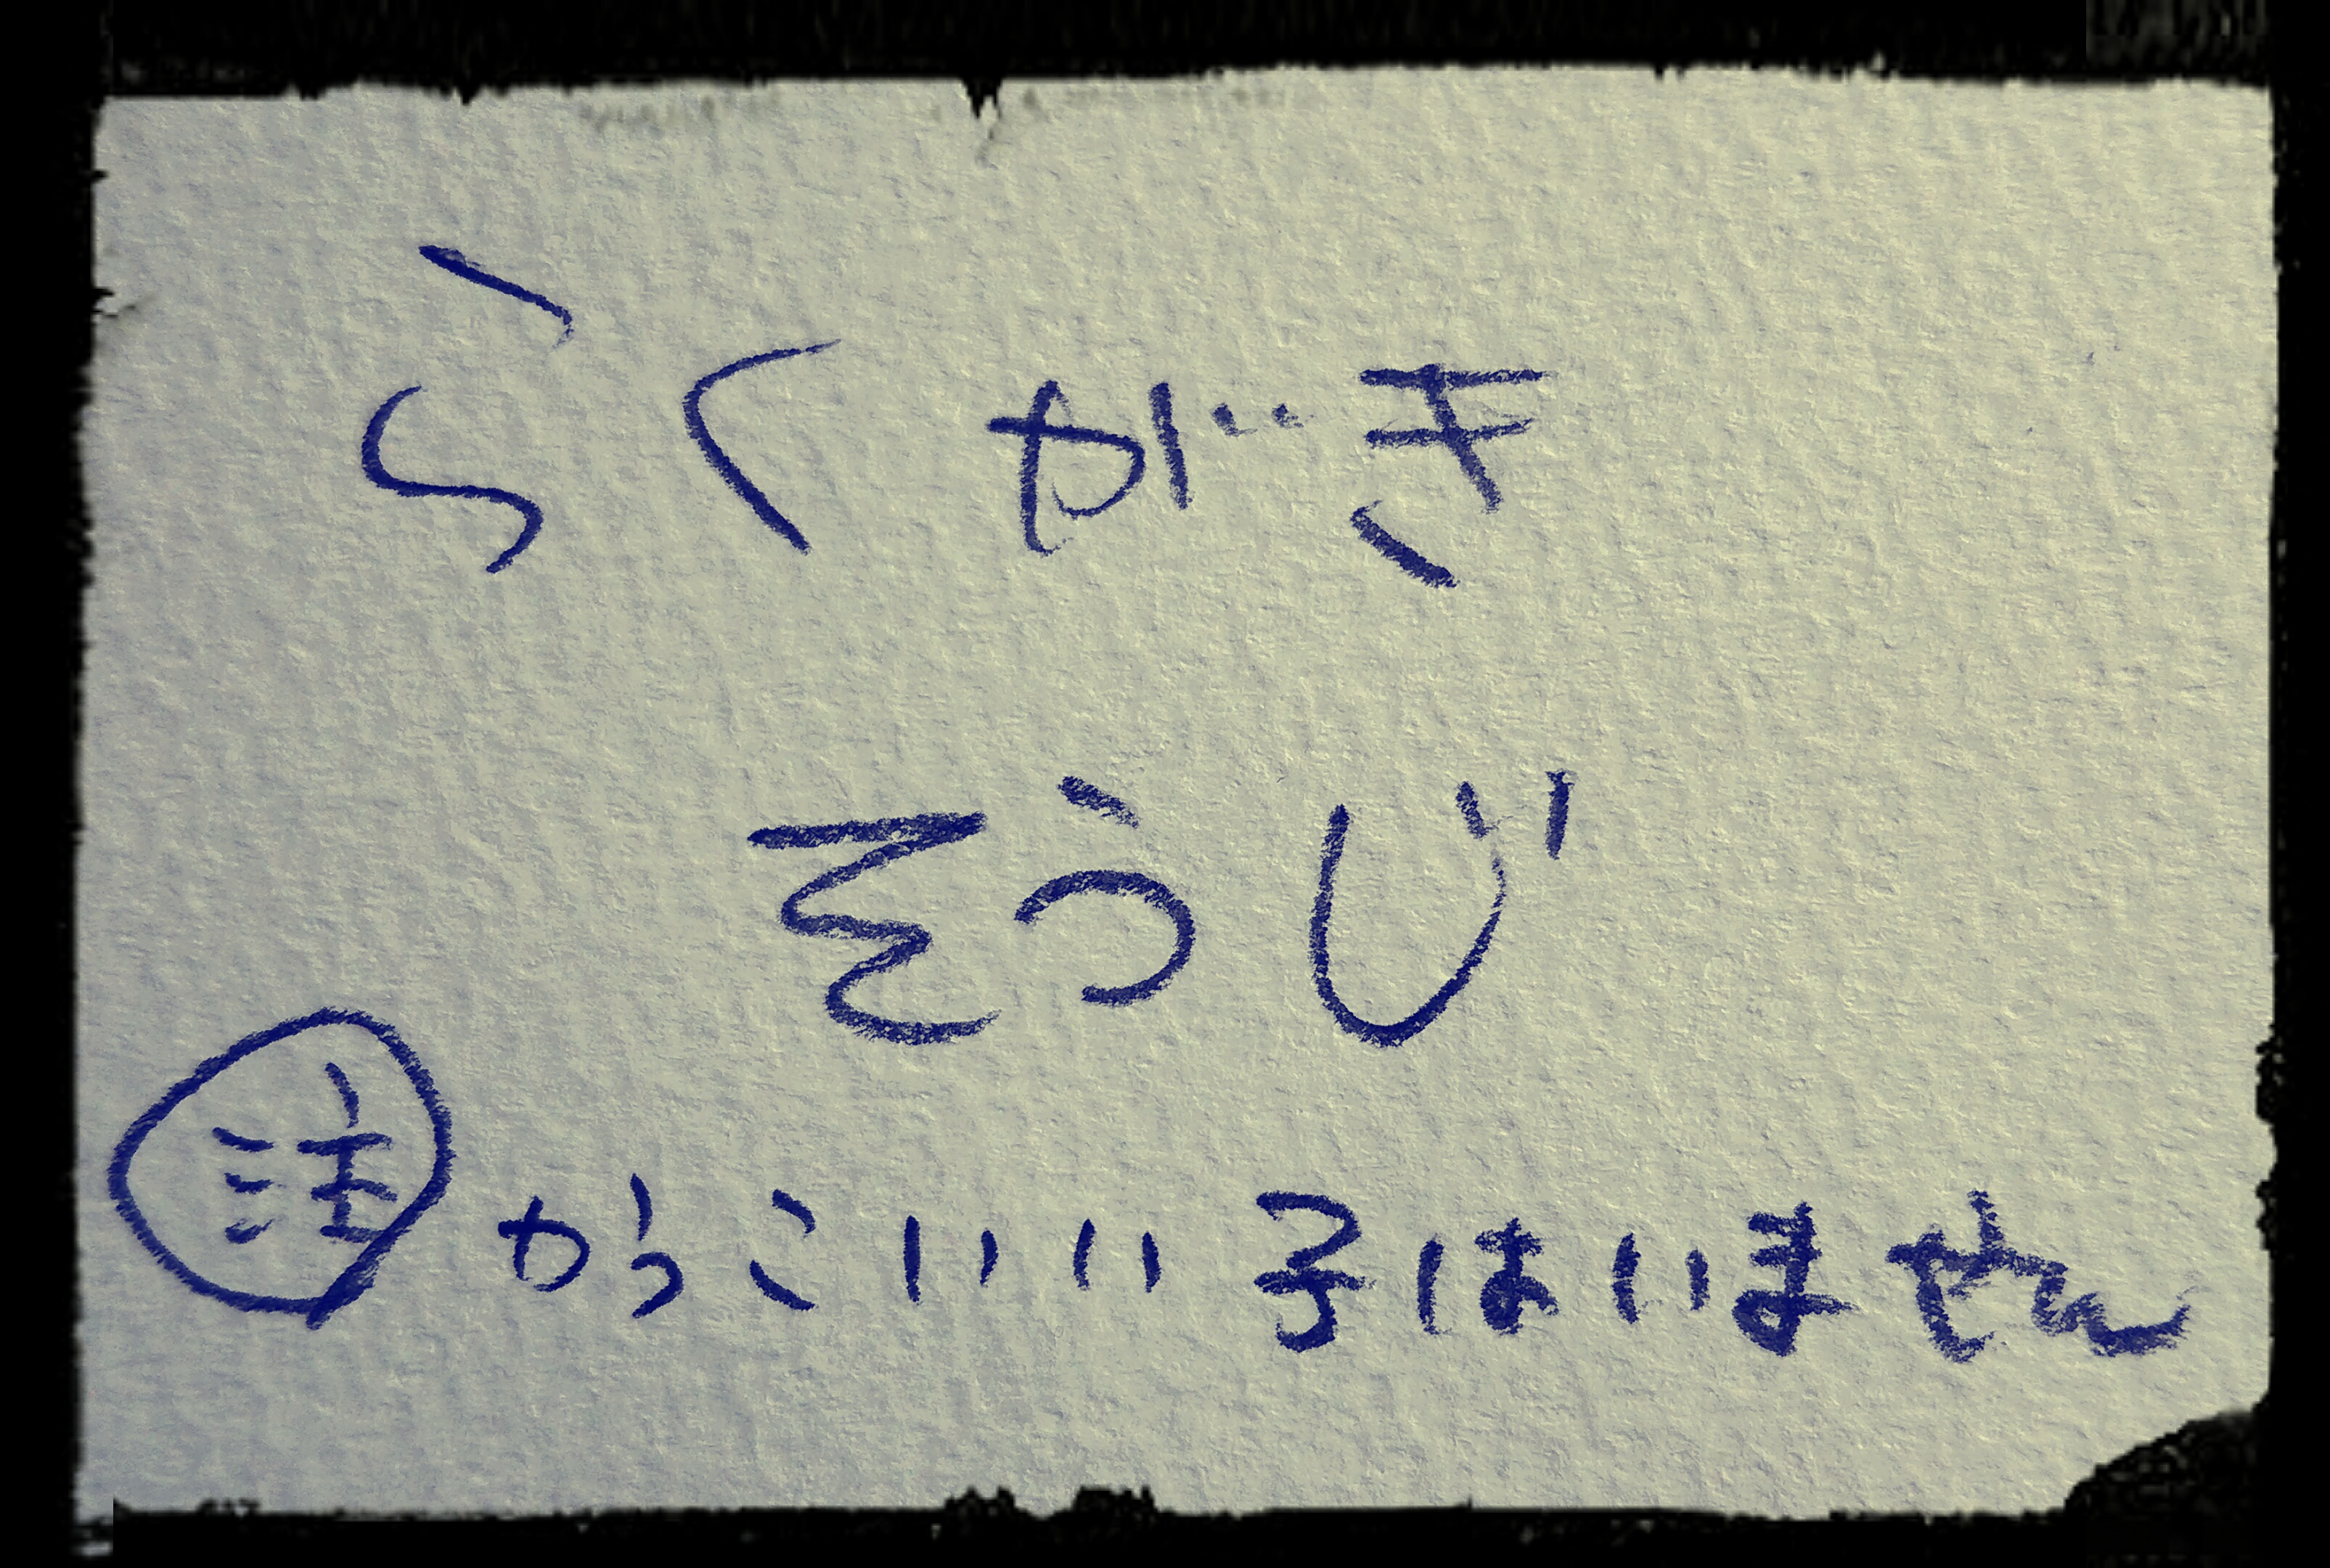 らくがき
そうじ
注 からこいいい子はいません